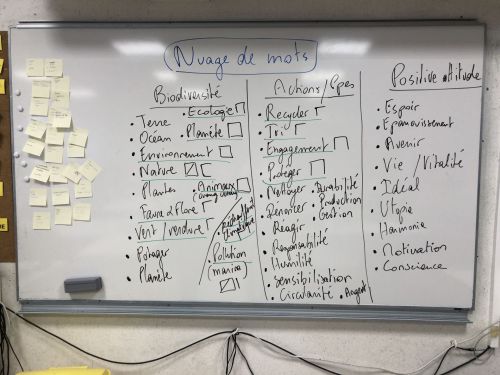 Nuage de mots
Biodiversité
• Terre
• Océan
• Environnement
• Nature
• Plantes
• Faune & flore
• Vert / verdure
• Potager
• Planète
• Ecologie
• Planète
• Animaux
Pollution
(marine)
Actions /
• Recycler
• Tri
• Engagement
• Protéger
• Nettoyer
• Dénoncer
• Réagir
• Responsabilité
• Humilité
• Sensibilisation
• Circularité • Argent
• Durabilité
• Production
• Gestion
Positive Attitude
• Espoir
• Epanouissement
• Avenir
• Vie / Vitalité
• Idéal
• Utopie
• Harmonie
• Motivation
• Conscience